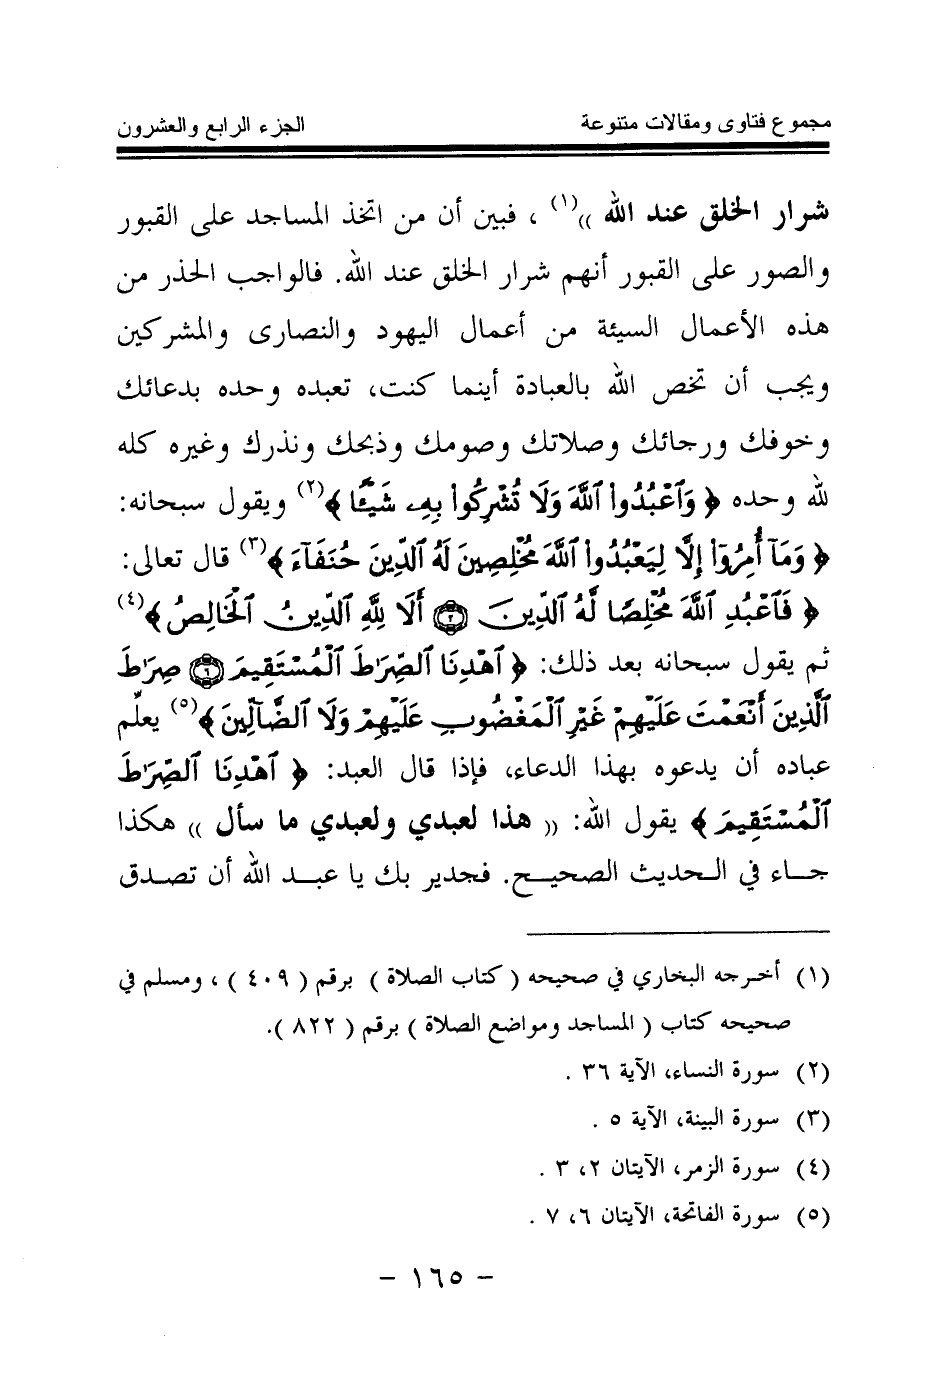 مجموع فتاوى ومقالات متنوعة
الجزء الرابع والعشرون
شرار الخلق عند الله »(١) ، فبين أن من اتخذ المساجد على القبور
والصور على القبور أنهم شرار الخلق عند الله. فالواجب الحذر من
هذه الأعمال السيئة من أعمال اليهود والنصارى والمشركين
ويجب أن تخص الله بالعبادة أينما كنت، تعبده وحده بدعائك
وخوفك ورجائك وصلاتك وصومك وذبحك ونذرك وغيره كله
لله وحده ﴿ وَٱعْبُدُوا۟ ٱللَّهَ وَلَا تُشْرِكُوا۟ بِهِۦ شَيْـًٔا ﴾(٢) ويقول سبحانه:
﴿ وَمَآ أُمِرُوٓا۟ إِلَّا لِيَعْبُدُوا۟ ٱللَّهَ مُخْلِصِينَ لَهُ ٱلدِّينَ حُنَفَآءَ ﴾(٣) قال تعالى:
﴿ فَٱعْبُدِ ٱللَّهَ مُخْلِصًا لَّهُ ٱلدِّينَ ۝٢ أَلَا لِلَّهِ ٱلدِّينُ ٱلْخَالِصُ ﴾(٤)
ثم يقول سبحانه بعد ذلك: ﴿ ٱهْدِنَا ٱلصِّرَٰطَ ٱلْمُسْتَقِيمَ ۝٦ صِرَٰطَ
ٱلَّذِينَ أَنْعَمْتَ عَلَيْهِمْ غَيْرِ ٱلْمَغْضُوبِ عَلَيْهِمْ وَلَا ٱلضَّآلِّينَ ﴾(٥) يعلِّم
عباده أن يدعوه بهذا الدعاء، فإذا قال العبد: ﴿ ٱهْدِنَا ٱلصِّرَٰطَ
ٱلْمُسْتَقِيمَ ﴾ يقول الله: « هذا لعبدي ولعبدي ما سأل » هكذا
جاء في الحديث الصحيح. فجدير بك يا عبد الله أن تصدق
(١) أخرجه البخاري في صحيحه ( كتاب الصلاة ) برقم ( ٤٠٩ ) ، ومسلم في
صحيحه كتاب ( المساجد ومواضع الصلاة ) برقم ( ٨٢٢ ).
(٢) سورة النساء، الآية ٣٦ .
(٣) سورة البينة، الآية ٥ .
(٤) سورة الزمر، الآيتان ٢، ٣ .
(٥) سورة الفاتحة، الآيتان ٦، ٧ .
- ١٦٥ -